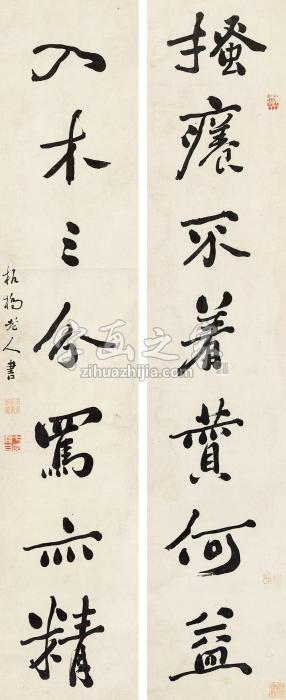 搔癢不着贊何益
入木三分罵亦精
板橋老人書
字画之家
zihuazhijia.com